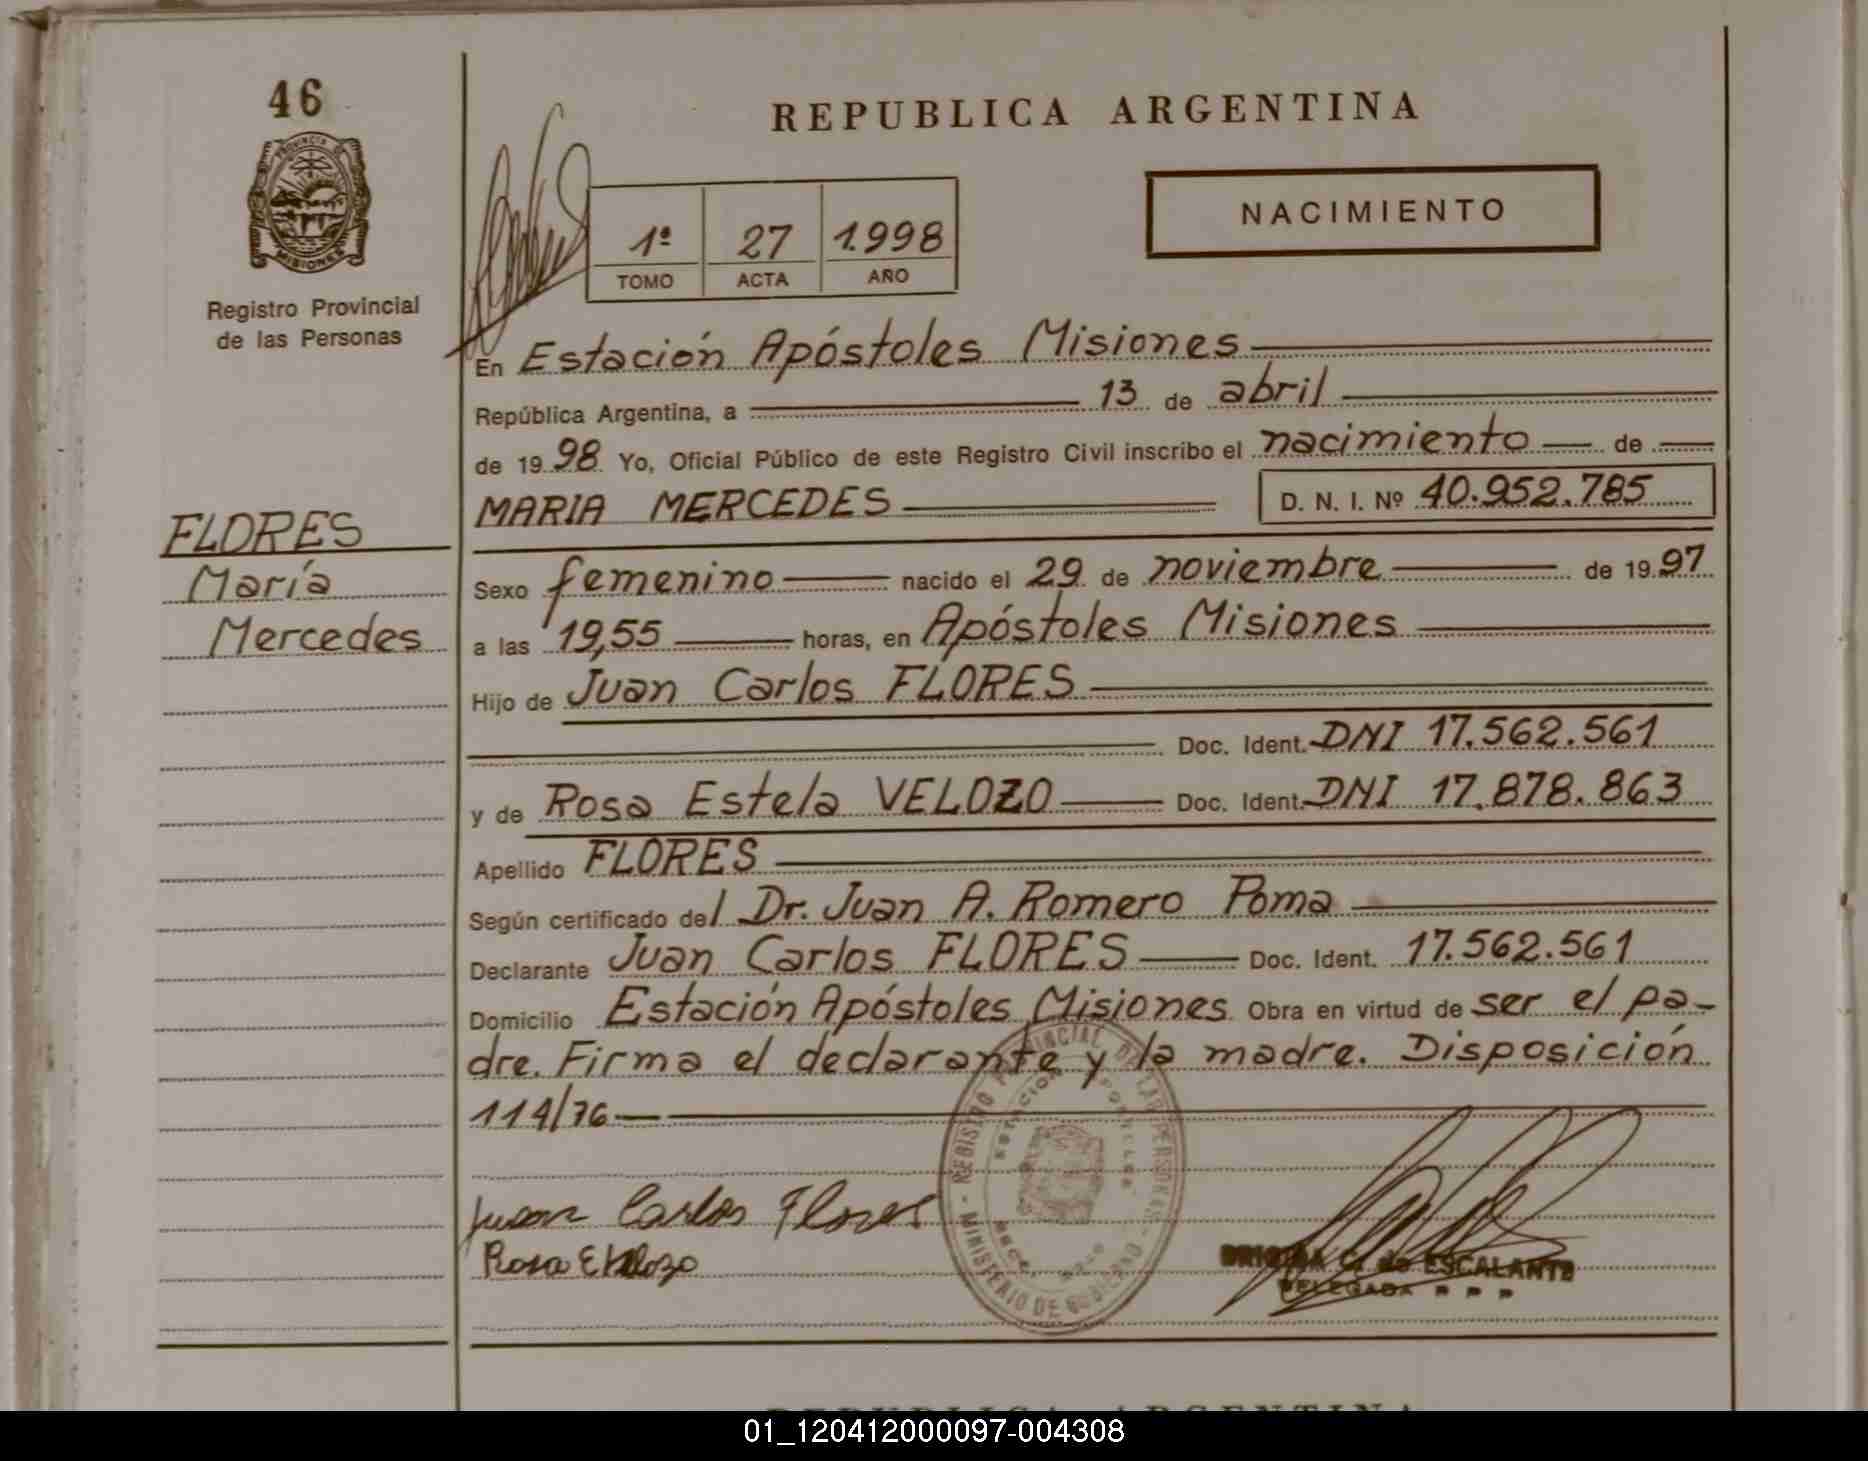 46
PROVINCIA DE
MISIONES
Registro Provincial
de las Personas
REPUBLICA ARGENTINA
NACIMIENTO
1º 27 1.998
TOMO ACTA AÑO
En Estación Apóstoles Misiones
República Argentina, a 13 de abril
de 1998 Yo, Oficial Público de este Registro Civil inscribo el nacimiento de
MARIA MERCEDES D. N. I. Nº 40.952.785
FLORES
María
Mercedes
Sexo femenino nacido el 29 de noviembre de 1997
a las 19,55 horas, en Apóstoles Misiones
Hijo de Juan Carlos FLORES
Doc. Ident. DNI 17.562.561
y de Rosa Estela VELOZO Doc. Ident. DNI 17.878.863
Apellido FLORES
Según certificado del Dr. Juan A. Romero Poma
Declarante Juan Carlos FLORES Doc. Ident. 17.562.561
Domicilio Estación Apóstoles Misiones Obra en virtud de ser el pa-
dre. Firma el declarante y la madre. Disposición
114/76
Juan Carlos Flores
Rosa E Velozo
REGISTRO PROVINCIAL DE LAS PERSONAS
MINISTERIO DE GOBIERNO
C. de ESCALANTE
DELEGADA
REPUBLICA ARGENTINA
01_120412000097-004308